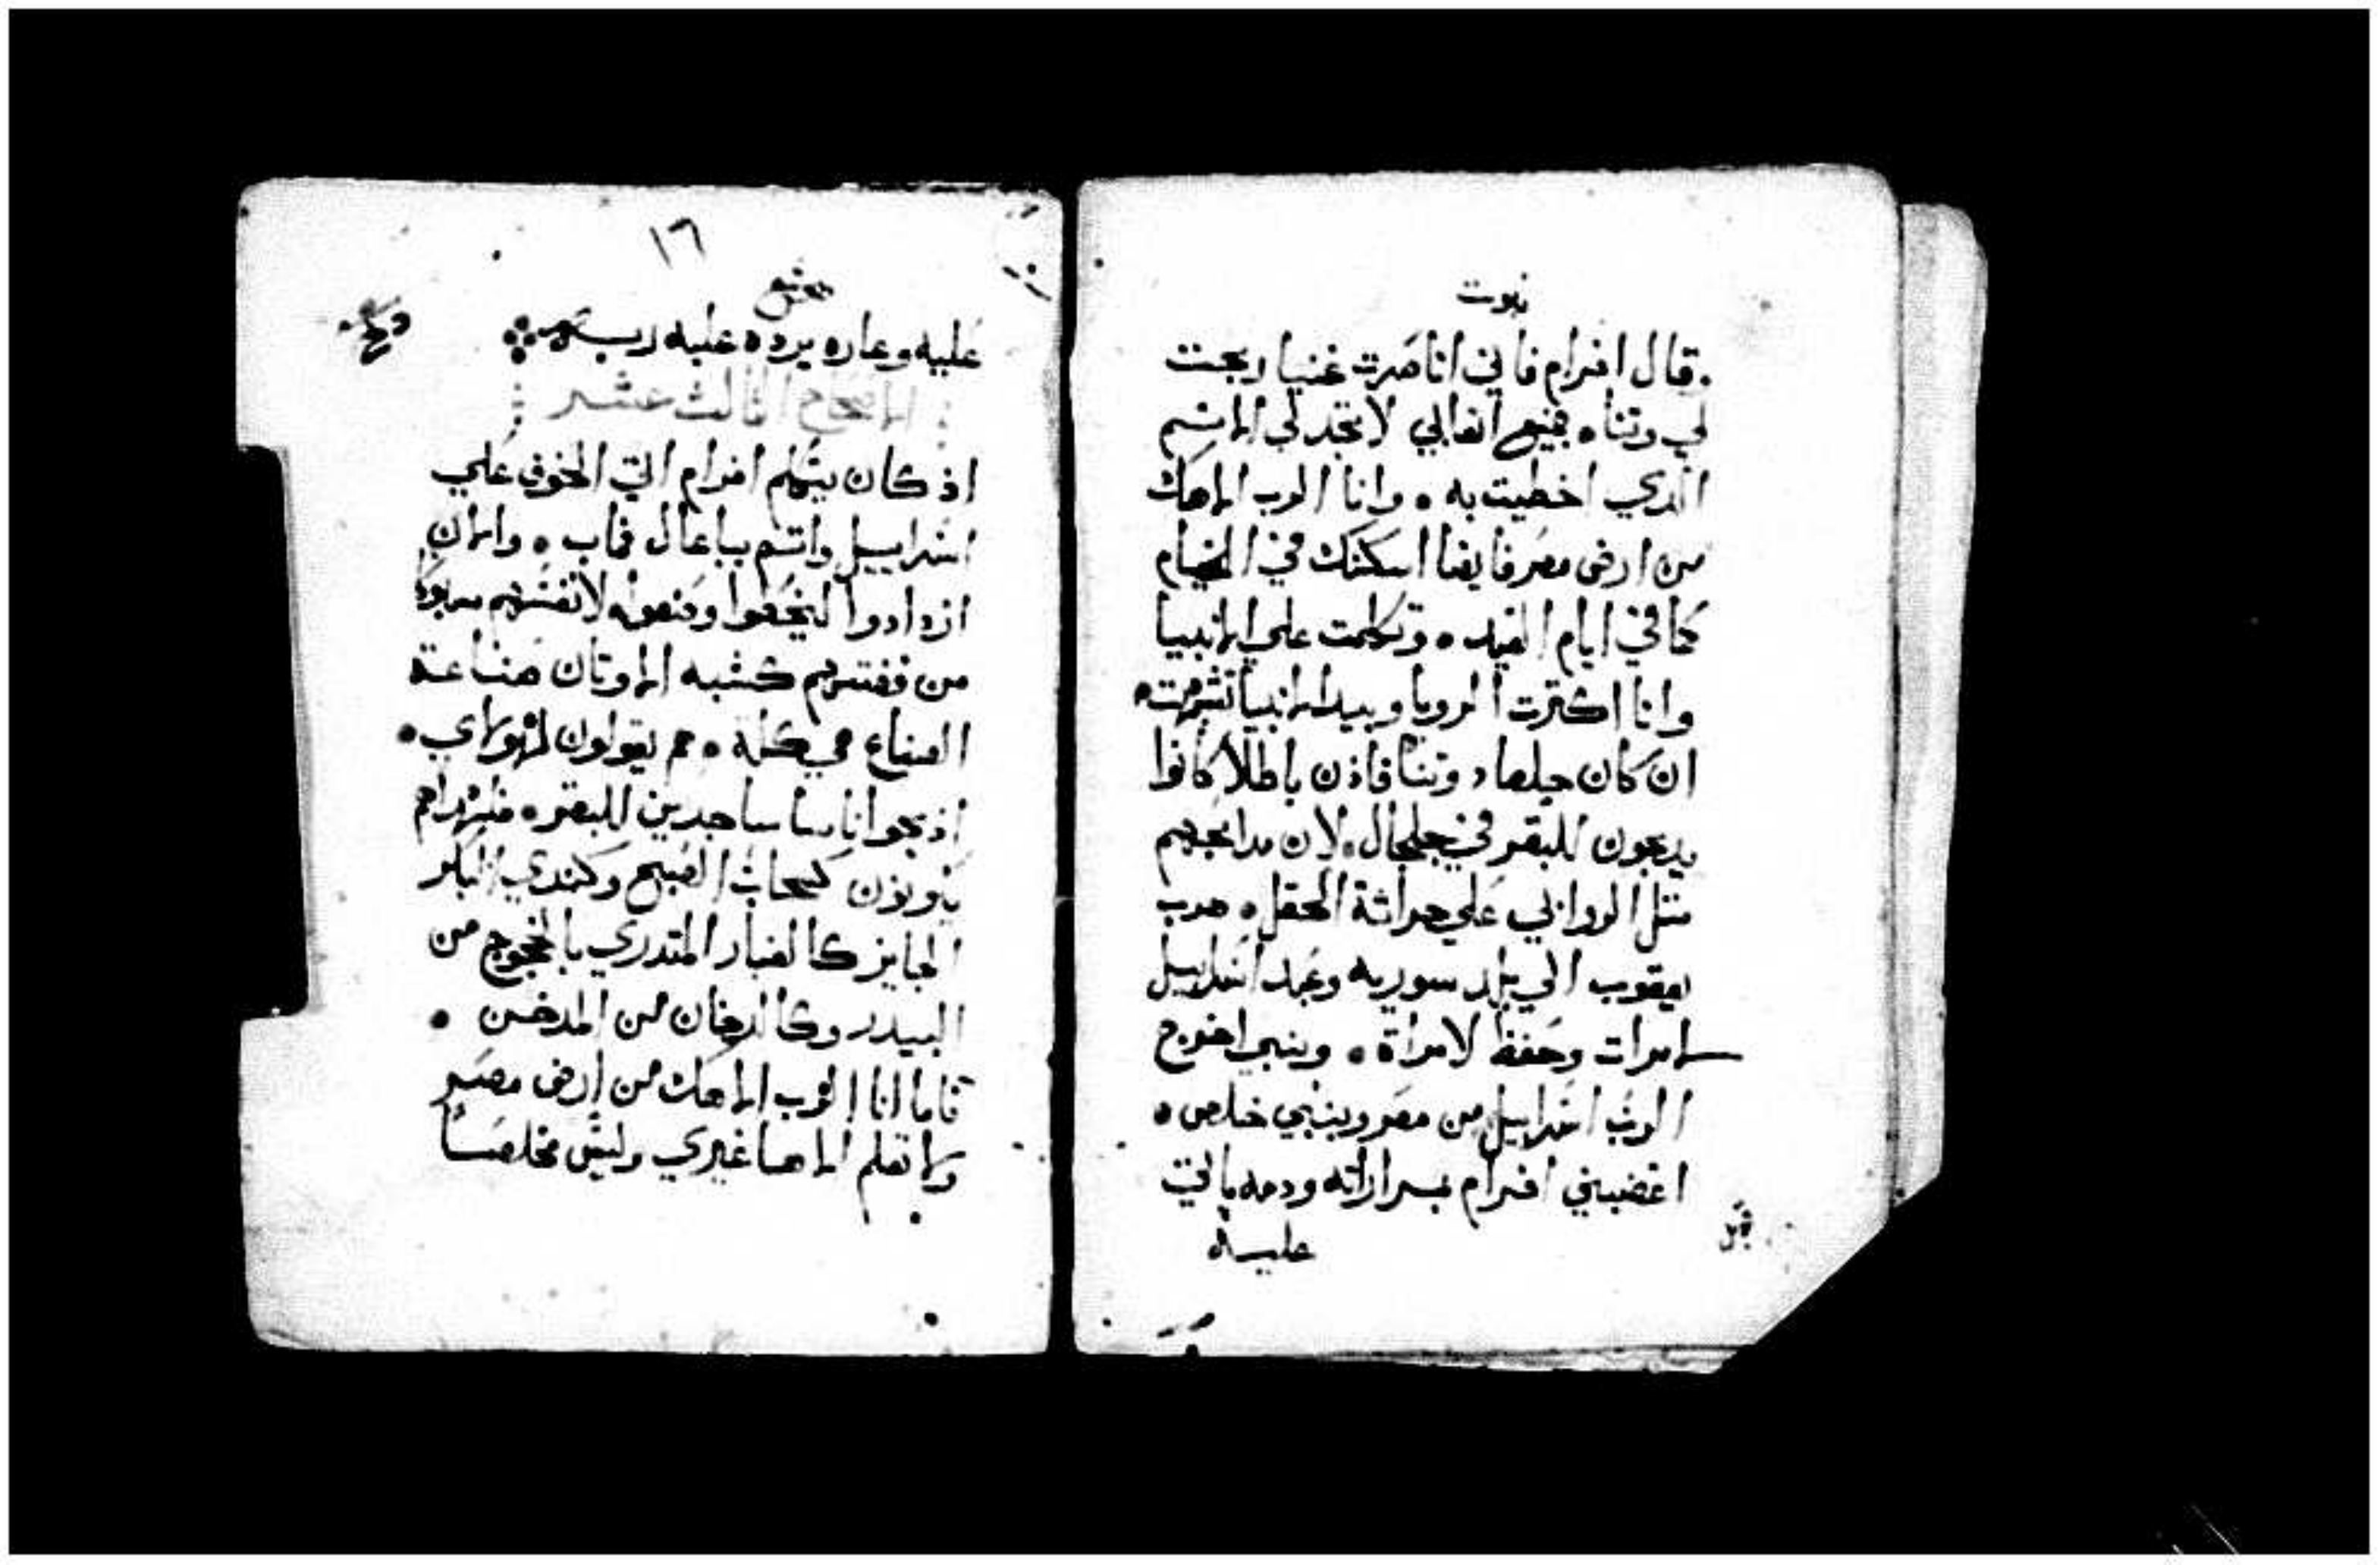 نبوت
قال افرام فاني انا صرت غنيا وجدت
لي وثنا • جميع اتعابي لا تجد لي الاثم
الذي اخطيت به • وانا الرب الاهك
من ارض مصر فايضا اسكنك في الخيام
كما في ايام العيد • وتكلمت علي الانبيا
وانا اكترت الرويا وبيد الانبيا تشبهت •
ان كان جلعاد وثنا فاذن باطلا كانوا
يدبحون للبقر في جلجال • لان مدابحهم
مثل الروابي علي حراثة الحقل • هرب
يعقوب الي بلد سوريه وعبد اسراييل
لامرات وحفظ لامراة • وبنبي اخرج
الرب اسراييل من مصر وبنبي خلص •
اغضبني افرام بمراراته ودمه ياتي
عليه
١٦
هوشع
عليه وعاره يرده عليه ربه
الاصحاح الثالث عشر
اذ كان يتكلم افرام اتي الخوف علي
اسراييل واثم بباعال فمات • والان
ازدادوا ليخطوا وصنعوا لانفسهم مسبوكا
من فضتهم كشبه الاوثان صناعة
الصناع هي كله • هم يقولون لهولاي •
اذبحوا اناسا ساجدين للبقر • فلهذا هم
يكونون كسحاب الصبح وكندي الباكر
الجايز كالغبار المتدري بالخروج من
البيدر وكالدخان من المدخن •
فاما انا الرب الاهك من ارض مصر
ولا تعلم الاها غيري وليس مخلصا